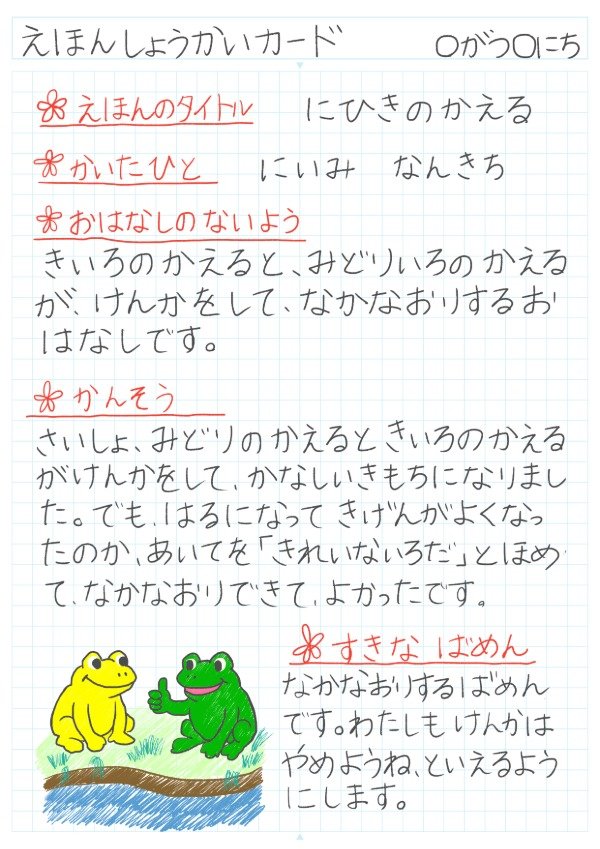 えほんしょうかいカード 〇がつ〇にち
えほんのタイトル にひきのかえる
かいたひと にいみ なんきち
おはなしのないよう
きいろのかえると、みどりいろのかえる
が、けんかをして、なかなおりするお
はなしです。
かんそう
さいしょ、みどりのかえるときいろのかえる
がけんかをして、かなしいきもちになりまし
た。でも、はるになってきげんがよくなっ
たのか、あいてを「きれいないろだ」とほめ
て、なかなおりできて、よかったです。
すきな ばめん
なかなおりするばめん
です。わたしもけんかは
やめようね、といえるよう
にします。